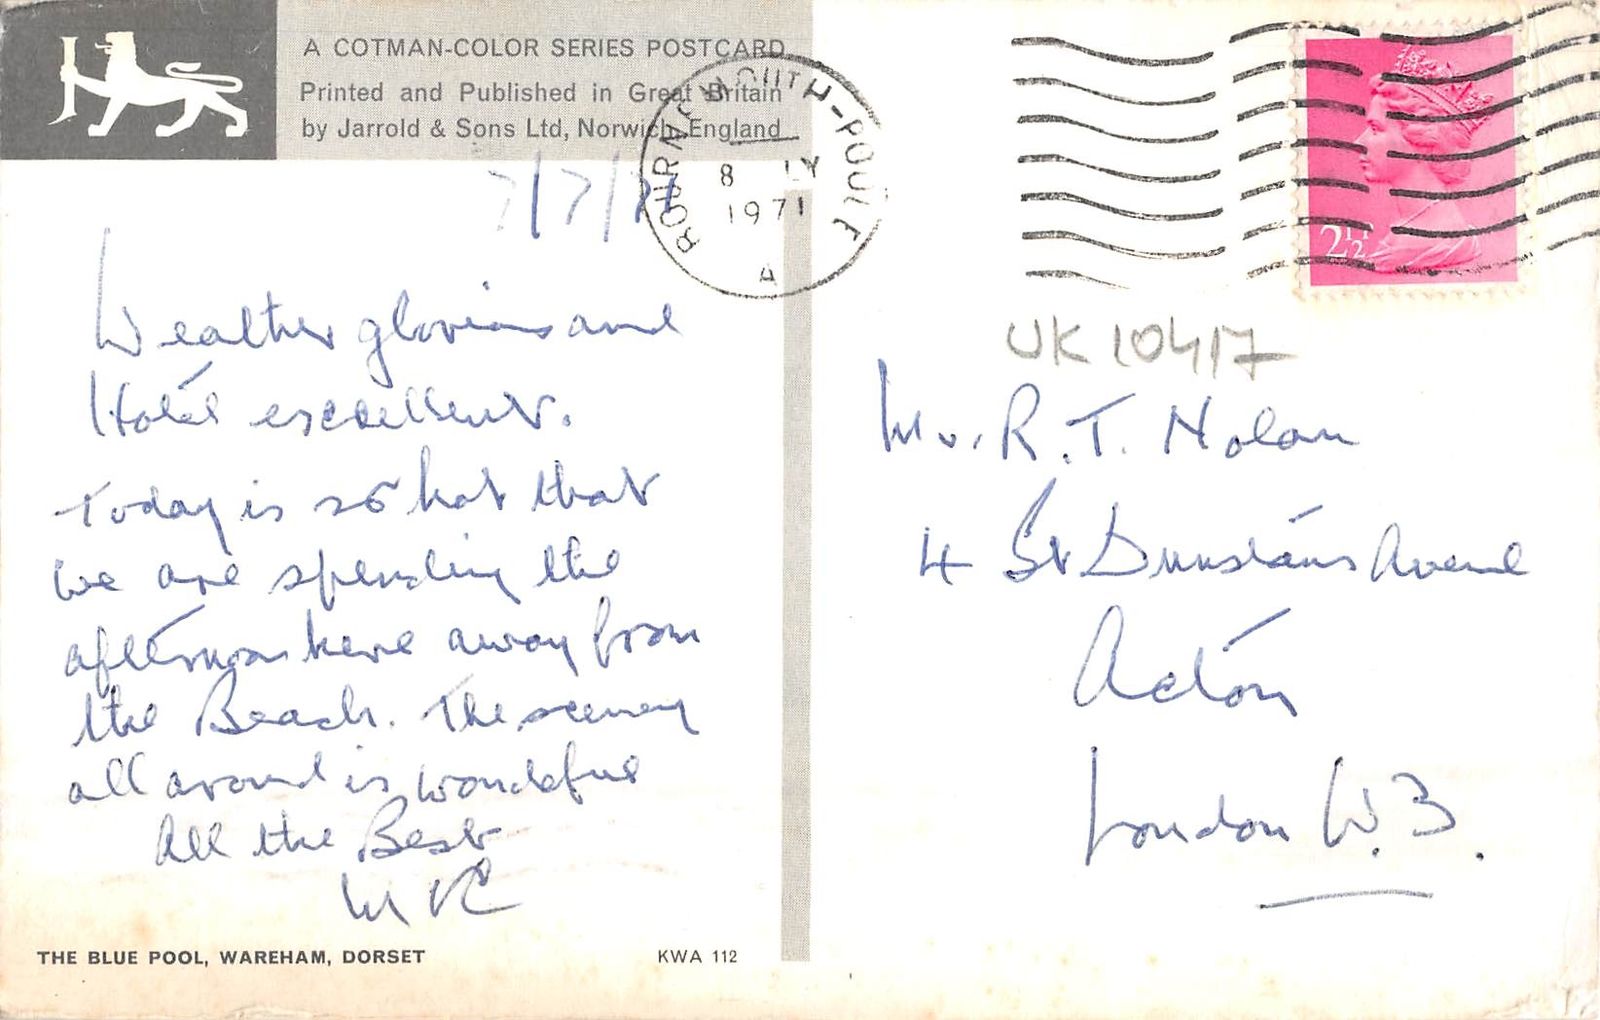 A COTMAN-COLOR SERIES POSTCARD
Printed and Published in Great Britain
by Jarrold & Sons Ltd, Norwich, England
BOURNEMOUTH-POOLE
8
1971
A
2½
7/7/71
Weather glorious and
Hotel excellent.
Today is so hot that
we are spending the
afternoon here away from
the Beach. The scenery
all around is wonderful
All the Best
THE BLUE POOL, WAREHAM, DORSET
KWA 112
UK 10417
Mr. R. T. Nolan
4 St Dunstans Avenue
Acton
London W.3.